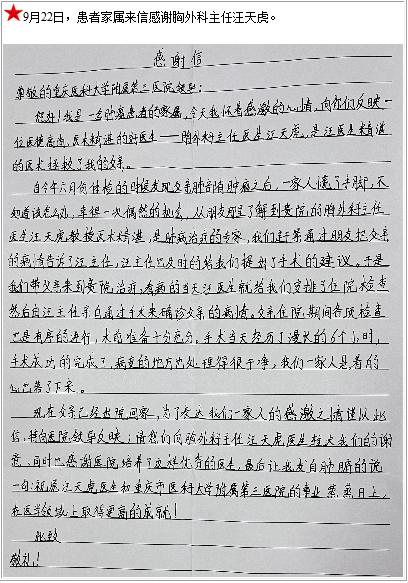 ★9月22日，患者家属来信感谢胸外科主任汪天虎。
感谢信
尊敬的重庆医科大学附属第三医院领导：
您好！我是一名肿瘤患者的家属，今天我怀着感激的心情，向你们反映一
位医德高尚，医术精湛的好医生——胸外科主任医生汪天虎，是汪医生精湛
的医术拯救了我的父亲。
自今年六月份体检的时候发现父亲肺部有肿瘤之后，一家人慌了手脚，不
知道该怎么办，幸但一次偶然的机会，从朋友那里了解到贵院的胸外科主任
医生汪天虎教授医术精湛，是肺病治疗的专家，我们赶紧通过朋友把父亲
的病情告诉了汪主任，汪主任也及时的给我们提出了手术的建议。于是
我们带父亲来到贵院治疗，看病的当天汪医生就给我们安排了住院检查
然后由汪主任亲自通过手术来确诊父亲的病情。父亲住院期间各项检查
也是有序的进行，术前准备十分充分，手术当天经历了漫长的6个小时，
手术成功的完成了，病变的地方也处理得很干净，我们一家人悬着的
心也落了下来。
现在父亲已经出院回家，为了表达我们一家人的感激之情谨以此
信，转向医院领导反映，请我们向胸外科主任汪天虎医生转达我们的谢
意，同时也感谢医院培养了这样优秀的医生，最后让我发自肺腑的说
一句：祝愿汪天虎医生和重庆市医科大学附属第三医院的事业蒸蒸日上，
在医学领域上取得更高的成就！
此致
敬礼！